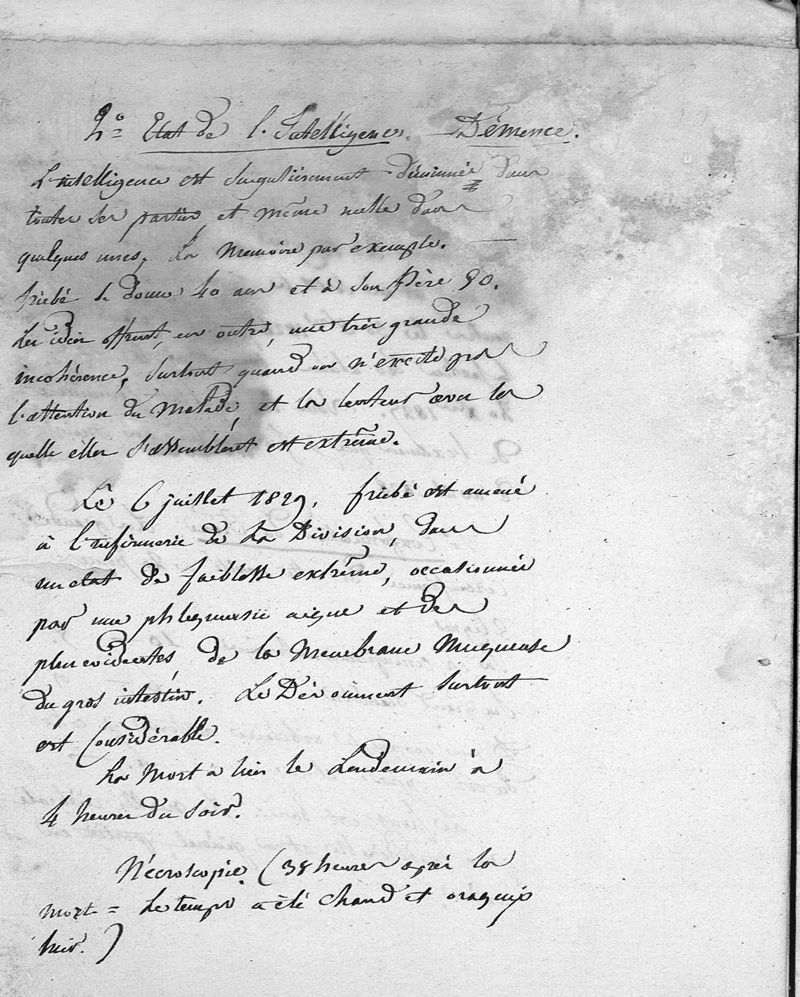 2° Etat de l'Intelligence. – Démence.
L'intelligence est singulièrement diminuée dans
toutes ses parties, et même nulle dans
quelques unes, La Memoire par exemple.
friebé se donne 40 ans et à son Père 90.
Les idées offrent, en outre, une très grande
incohérence, surtout quand on n'excite pas
l'attention du Malade, et la lenteur avec la
quelle elles s'assemblent est extrême.
Le 6 juillet 1829, friebé est amené
à l'infirmerie de la Division, dans
un état de faiblesse extrême, occasionnée
par une phlegmasie aigue et des
plus évidentes, de la Membrane Muqueuse
du gros intestin. Le Dévoiement surtout
est Considérable.
La Mort a lieu le Lendemain à
4 heures du soir.
Nécroscopie. (38 heures après la
mort = Le temps a été chaud et orageux
hier.)